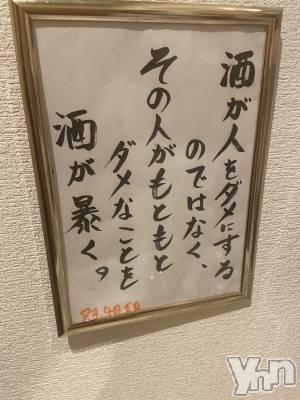 酒が人をダメにする
のではなく、
その人がもともと
ダメなことを
酒が暴く。